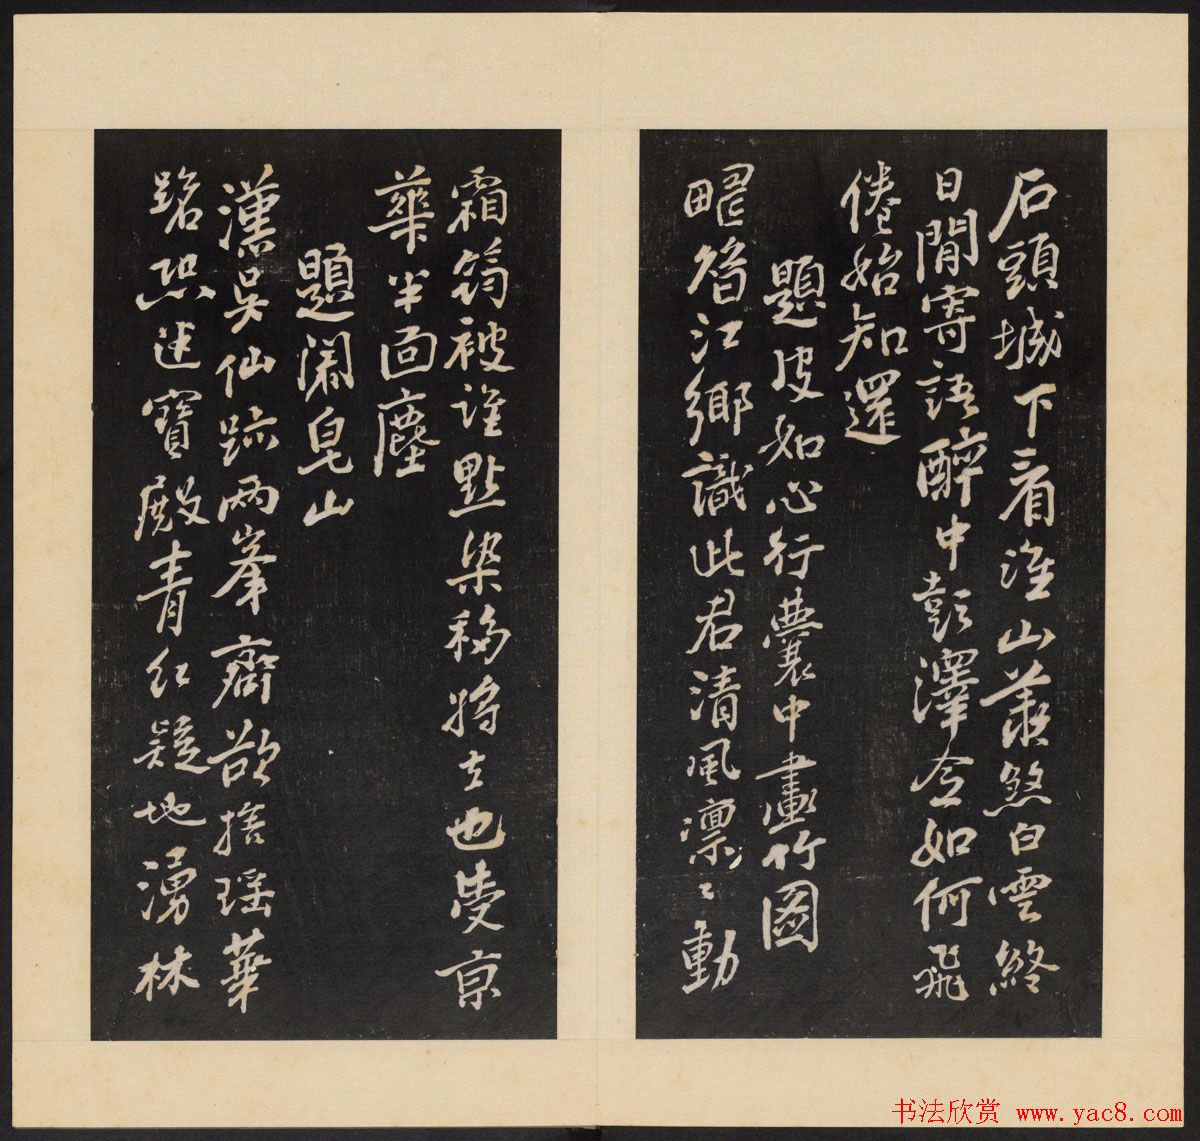 石頭城下看淮山蕭然白雲終
日閒寄語醉中彭澤令如何飛
倦始知還
題皮如心行囊中畫竹圖
江鄉識此君清風凜〻動
霜筠被誰點染移將去也受京
華半面塵
題閤皂山
漢吳仙跡兩峯齊欲捨瑤華
路恐迷寶殿青紅疑地湧林
书法欣赏 www.yac8.com